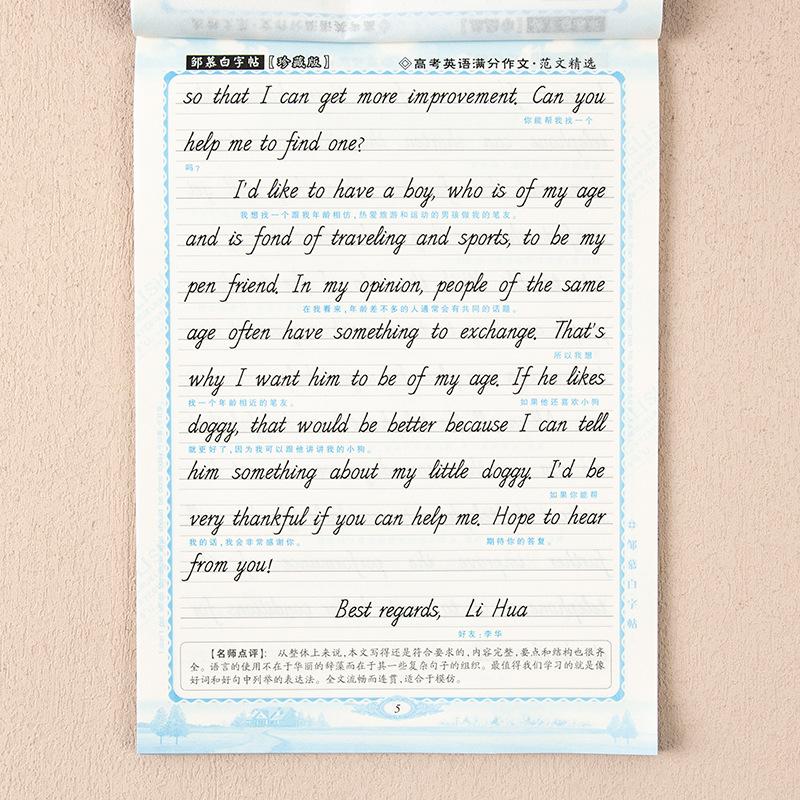 邹慕白字帖【珍藏版】 ◇高考英语满分作文·范文精选
so that I can get more improvement. Can you
你能帮我找一个
help me to find one?
吗?
I'd like to have a boy, who is of my age
我想找一个跟我年龄相仿,热爱旅游和运动的男孩做我的笔友。
and is fond of traveling and sports, to be my
pen friend. In my opinion, people of the same
在我看来,年龄差不多的人通常会有共同的话题。
age often have something to exchange. That's
所以我想
why I want him to be of my age. If he likes
找一个年龄相近的笔友。 如果他还喜欢小狗
doggy, that would be better because I can tell
就更好了,因为我可以跟他讲讲我的小狗。
him something about my little doggy. I'd be
如果你能帮
very thankful if you can help me. Hope to hear
我的话,我会非常感谢你。 期待你的答复。
from you!
Best regards, Li Hua
好友:李华
【名师点评】: 从整体上来说,本文写得还是符合要求的,内容完整,要点和结构也很齐
全。语言的使用不在于华丽的辞藻而在于其一些复杂句子的组织。最值得我们学习的就是像
好词和好句中列举的表达法。全文流畅而连贯,适合于模仿。
5